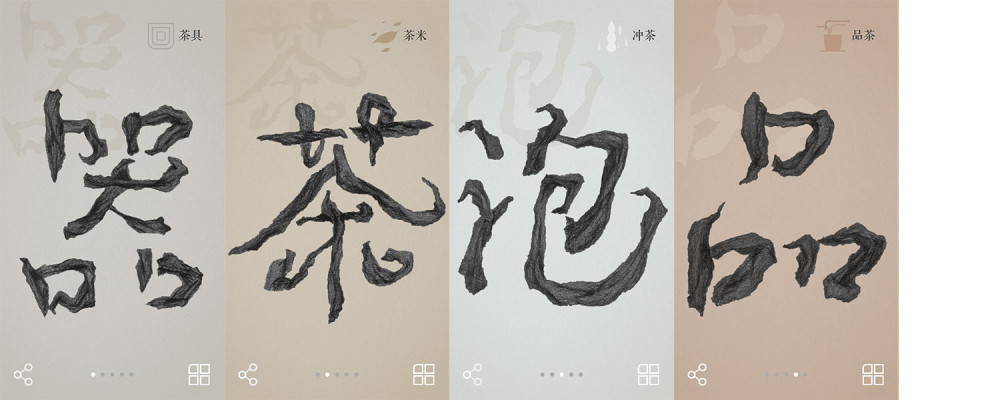 茶具
器
茶米
茶
冲茶
泡
品茶
品